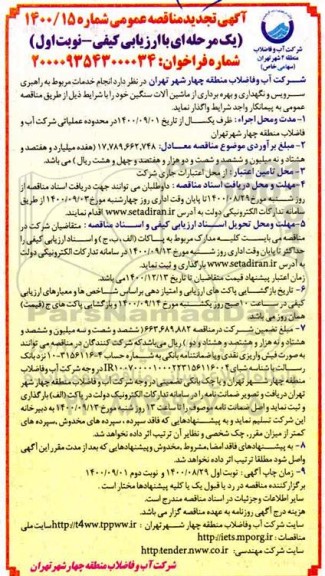 آگهی تجدید مناقصه عمومی شماره ۱۴۰۰/۱۵
(یک مرحله‌ای با ارزیابی کیفی – نوبت اول)
شماره فراخوان: ۲۰۰۰۰۹۳۵۴۳۰۰۰۰۳۴
شرکت آب و فاضلاب
منطقه ۴ شهر تهران
(سهامی خاص)
شرکت آب و فاضلاب منطقه چهار شهر تهران در نظر دارد انجام خدمات مربوط به راهبری
سرویس و نگهداری و بهره برداری از ماشین آلات سنگین خود را با شرایط ذیل از طریق مناقصه
عمومی به پیمانکار واجد شرایط واگذار نماید.
۱- مدت و محل اجراء: ظرف یکسال از تاریخ ۱۴۰۰/۰۹/۰۱ در محدوده عملیاتی شرکت آب و
فاضلاب منطقه چهار شهر تهران
۲- مبلغ برآوردی موضوع مناقصه معادل: ۱۷,۷۸۹,۶۶۲,۷۴۸ (هفده میلیارد و هفتصد و
هشتاد و نه میلیون و ششصد و شصت و دو هزار و هفتصد و چهل و هشت ریال) می باشد.
۳- محل تامین اعتبار: از محل اعتبارات جاری شرکت
۴- مهلت و محل دریافت اسناد مناقصه: داوطلبان می توانند جهت دریافت اسناد مناقصه از
روز شنبه مورخ ۱۴۰۰/۰۸/۲۹ تا پایان وقت اداری روز چهارشنبه مورخ ۱۴۰۰/۰۹/۰۳ از طریق
سامانه تدارکات الکترونیکی دولت به آدرس www.setadiran.ir اقدام نمایند.
۵- مهلت و محل تحویل اسناد ارزیابی کیفی و اسناد مناقصه: متقاضیان شرکت در
مناقصه می بایست کلیه مدارک مربوط به پاکات (الف، ب، ج) و اسناد ارزیابی کیفی را
حداکثر تا پایان وقت اداری روز شنبه مورخ ۱۴۰۰/۰۹/۱۳ در سامانه تدارکات الکترونیکی دولت
به آدرس www.setadiran.ir بارگذاری و ثبت نمایند.
زمان اعتبار پیشنهاد قیمت متقاضیان تا تاریخ ۱۴۰۰/۱۲/۱۳ می باشد.
۶- تاریخ بازگشایی پاکت های ارزیابی و امتیاز دهی براساس شاخص ها و معیارهای ارزیابی
کیفی در ساعت ۱۰ صبح روز یکشنبه مورخ ۱۴۰۰/۰۹/۱۴ و بازگشایی پاکت های ج (قیمت)
همان روز می باشد.
۷- مبلغ تضمین شرکت در مناقصه ۶۶۳,۶۸۹,۸۸۲ (ششصد و شصت و سه میلیون و ششصد و
هشتاد و نه هزار و هشتصد و هشتاد و دو) ریال می باشد که شرکت کنندگان در مناقصه می توانند
به صورت فیش واریزی نقدی و یا ضمانتنامه بانکی به شماره حساب
در وجه شرکت آب و فاضلاب
منطقه چهار شهر تهران و یا چک بانکی تضمینی در وجه شرکت آب و فاضلاب منطقه چهار شهر
تهران دریافت و تصویر ضمانت نامه را در سامانه تدارکات الکترونیک دولت در پاکت (الف) بارگذاری
و ثبت نمایند و اصل ضمانت نامه
این شرکت تسلیم نمایند و به پیشنهادهایی که فاقد سپرده، سپرده های مخدوش، سپرده های
کمتر از میزان مقرر، چک شخصی و نظایر آن ترتیب اثر داده نخواهد شد.
۸- به پیشنهادهای فاقد امضا، مشروط، مخدوش و پیشنهادهایی که بعد از مدت مقرر این آگهی
واصل شود مطلقا ترتیب اثر داده نخواهد شد.
۹- زمان چاپ آگهی: نوبت اول ۱۴۰۰/۰۸/۲۹ و نوبت دوم ۱۴۰۰/۰۹/۰۱
برگزار کننده مناقصه در رد یا قبول یک یا کلیه پیشنهادها مختار است.
سایر اطلاعات و جزئیات در اسناد مناقصه مندرج است.
هزینه درج آگهی روزنامه به عهده مناقصه گزار می باشد.
سایت شرکت آب و فاضلاب منطقه چهار شهر تهران: http://t4ww.tppww.ir سایت ملی
مناقصات: http://iets.mporg.ir
سایت شرکت مهندسی: http:tender.nww.co.ir
شرکت آب و فاضلاب منطقه چهار شهر تهران